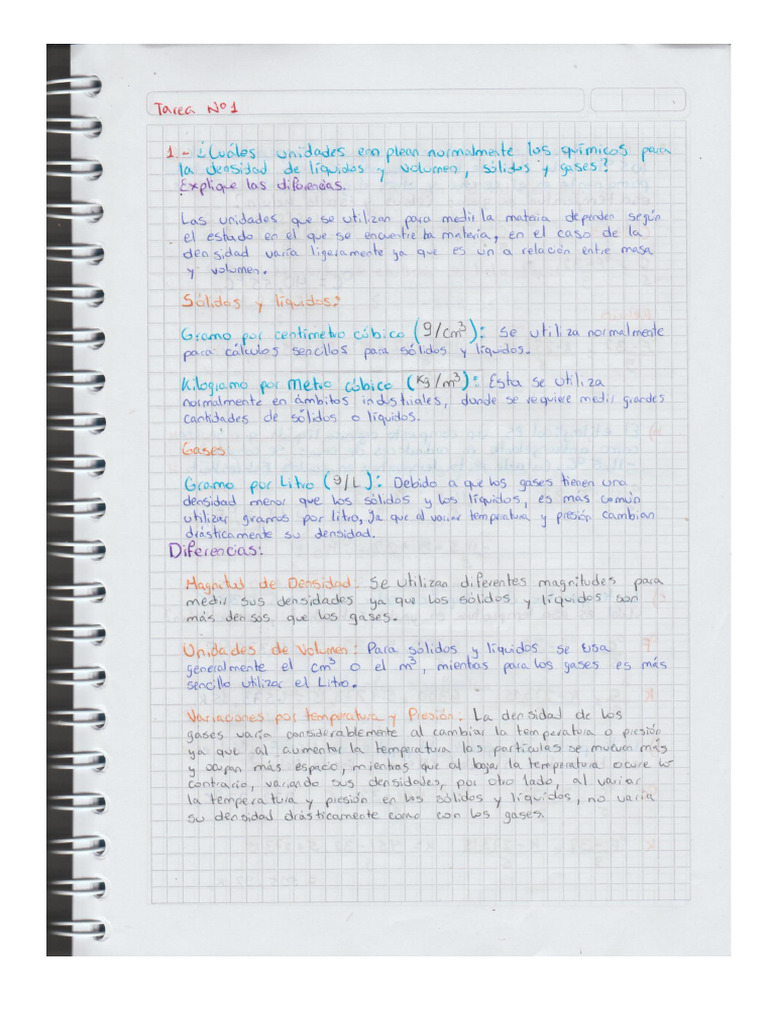 Tarea Nº1
1.- ¿Cuáles unidades emplean normalmente los químicos para
la densidad de líquidos y volumen, sólidos y gases?
Explique las diferencias.
Las unidades que se utilizan para medir la materia dependen según
el estado en el que se encuentre la materia, en el caso de la
densidad varía ligeramente ya que es una relación entre masa
y volumen.
Sólidos y líquidos:
Gramo por centímetro cúbico (g/cm³): Se utiliza normalmente
para cálculos sencillos para sólidos y líquidos.
Kilogramo por Metro cúbico (Kg/m³): Esta se utiliza
normalmente en ámbitos industriales, donde se requiere medir grandes
cantidades de sólidos o líquidos.
Gases
Gramo por Litro (g/L): Debido a que los gases tienen una
densidad menor que los sólidos y los líquidos, es mas común
utilizar gramos por litro, ya que al variar temperatura y presión cambian
drásticamente su densidad.
Diferencias:
Magnitud de Densidad: Se utilizan diferentes magnitudes para
medir sus densidades ya que los sólidos y líquidos son
más densos que los gases.
Unidades de Volumen: Para sólidos y líquidos se usa
generalmente el cm³ o el m³, mientas para los gases es más
sencillo utilizar el Litro.
Variaciones por temperatura y Presión: La densidad de los
gases varía considerablemente al cambiar la temperatura o presión
ya que al aumentar la temperatura las partículas se mueven más
y ocupan más espacio, mientras que al bajar la temperatura ocurre lo
contrario, variando sus densidades, por otro lado, al variar
la temperatura y presión en los sólidos y líquidos, no varía
su densidad drásticamente como con los gases.